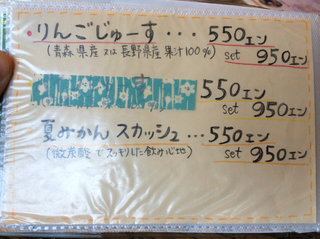 りんごじゅーす ・・・ 550エン
(青森県産又は長野県産 果汁100%) set 950エン
550エン
set 950エン
夏みかん スカッシュ ・・・ 550エン
(微炭酸でスッキリした飲み心地) set 950エン